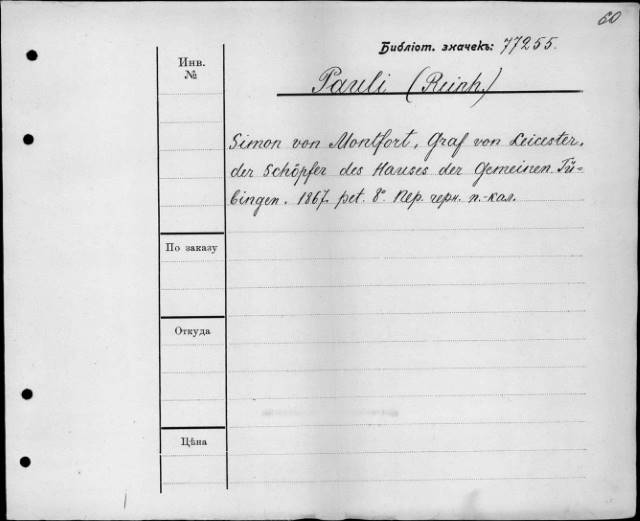 60
Библіот. значекъ: 77255.
Инв.
№
Pauli (Reinh.)
Simon von Montfort, Graf von Leicester,
der Schöpfer des Hauses der Gemeinen. Tü-
bingen. 1867. pet. 8°. Пер. черн. п.-кал.
По заказу
Откуда
Цѣна